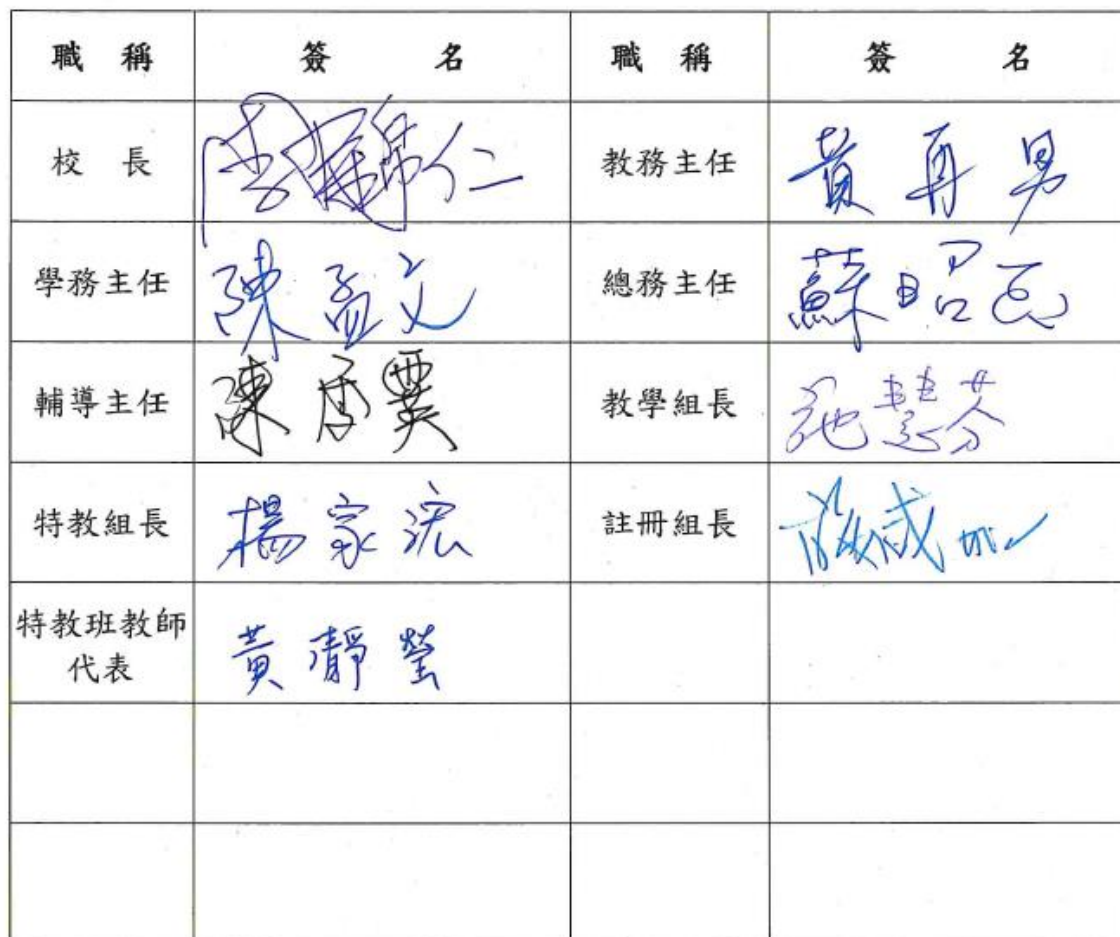 職 稱 簽 名 職 稱 簽 名
校 長 教務主任 黃再男
學務主任 陳孟文 總務主任 蘇昭
輔導主任 陳 教學組長 施慧芬
特教組長 楊家浤 註冊組長
特教班教師 黃瀞瑩
代表